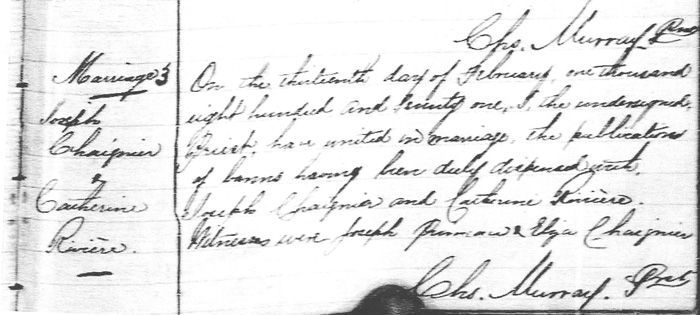 Chs. Murray Prst
Marriage 3
Joseph
Chaignier
&
Catherine
Rivière.
On the thirteenth day of February, one thousand
eight hundred and seventy one, I, the undersigned,
Priest, have united in marriage, the publications
of banns having been duly dispensed with,
Joseph Chaignier and Catherine Rivière.
Witnesses were Joseph Primeau & Eliza Chaignier
Chs. Murray. Prst